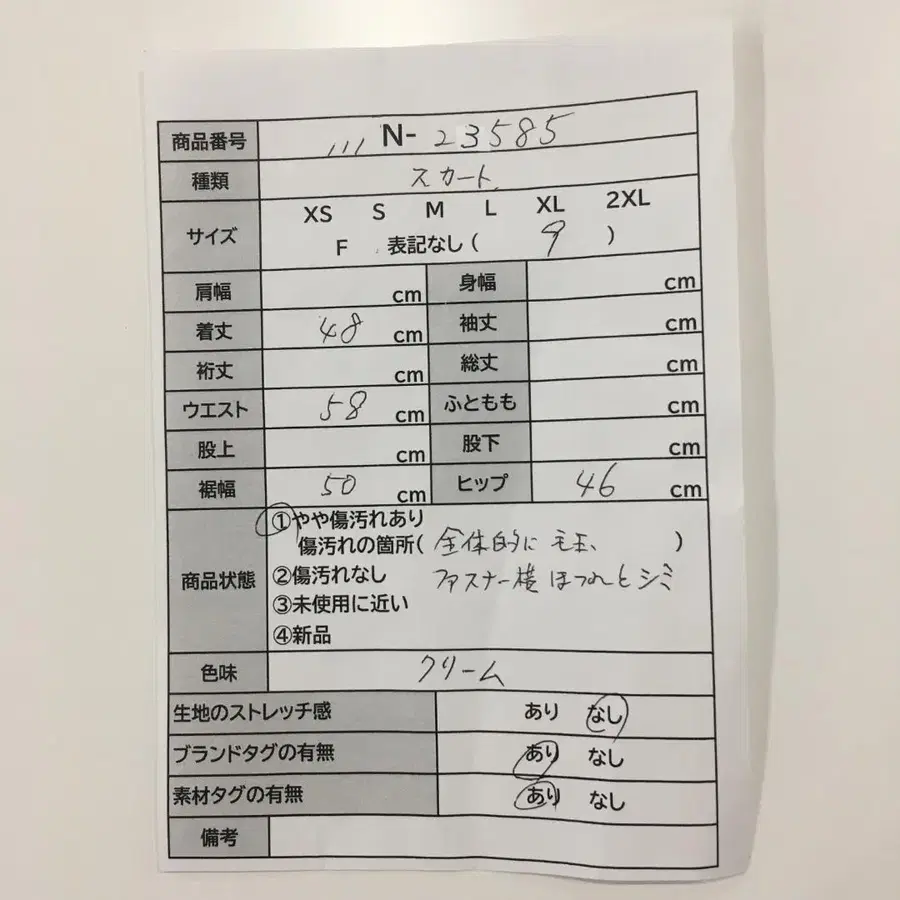 商品番号 ,,, N-23585
種類 スカート
サイズ XS S M L XL 2XL
F 表記なし( 9 )
肩幅 cm 身幅 cm
着丈 48 cm 袖丈 cm
裄丈 cm 総丈 cm
ウエスト 58 cm ふともも cm
股上 cm 股下 cm
裾幅 50 cm ヒップ 46 cm
商品状態 ①やや傷汚れあり
傷汚れの箇所( 全体的に毛玉、 )
②傷汚れなし ファスナー横ほつれとシミ
③未使用に近い
④新品
色味 クリーム
生地のストレッチ感 あり なし
ブランドタグの有無 あり なし
素材タグの有無 あり なし
備考